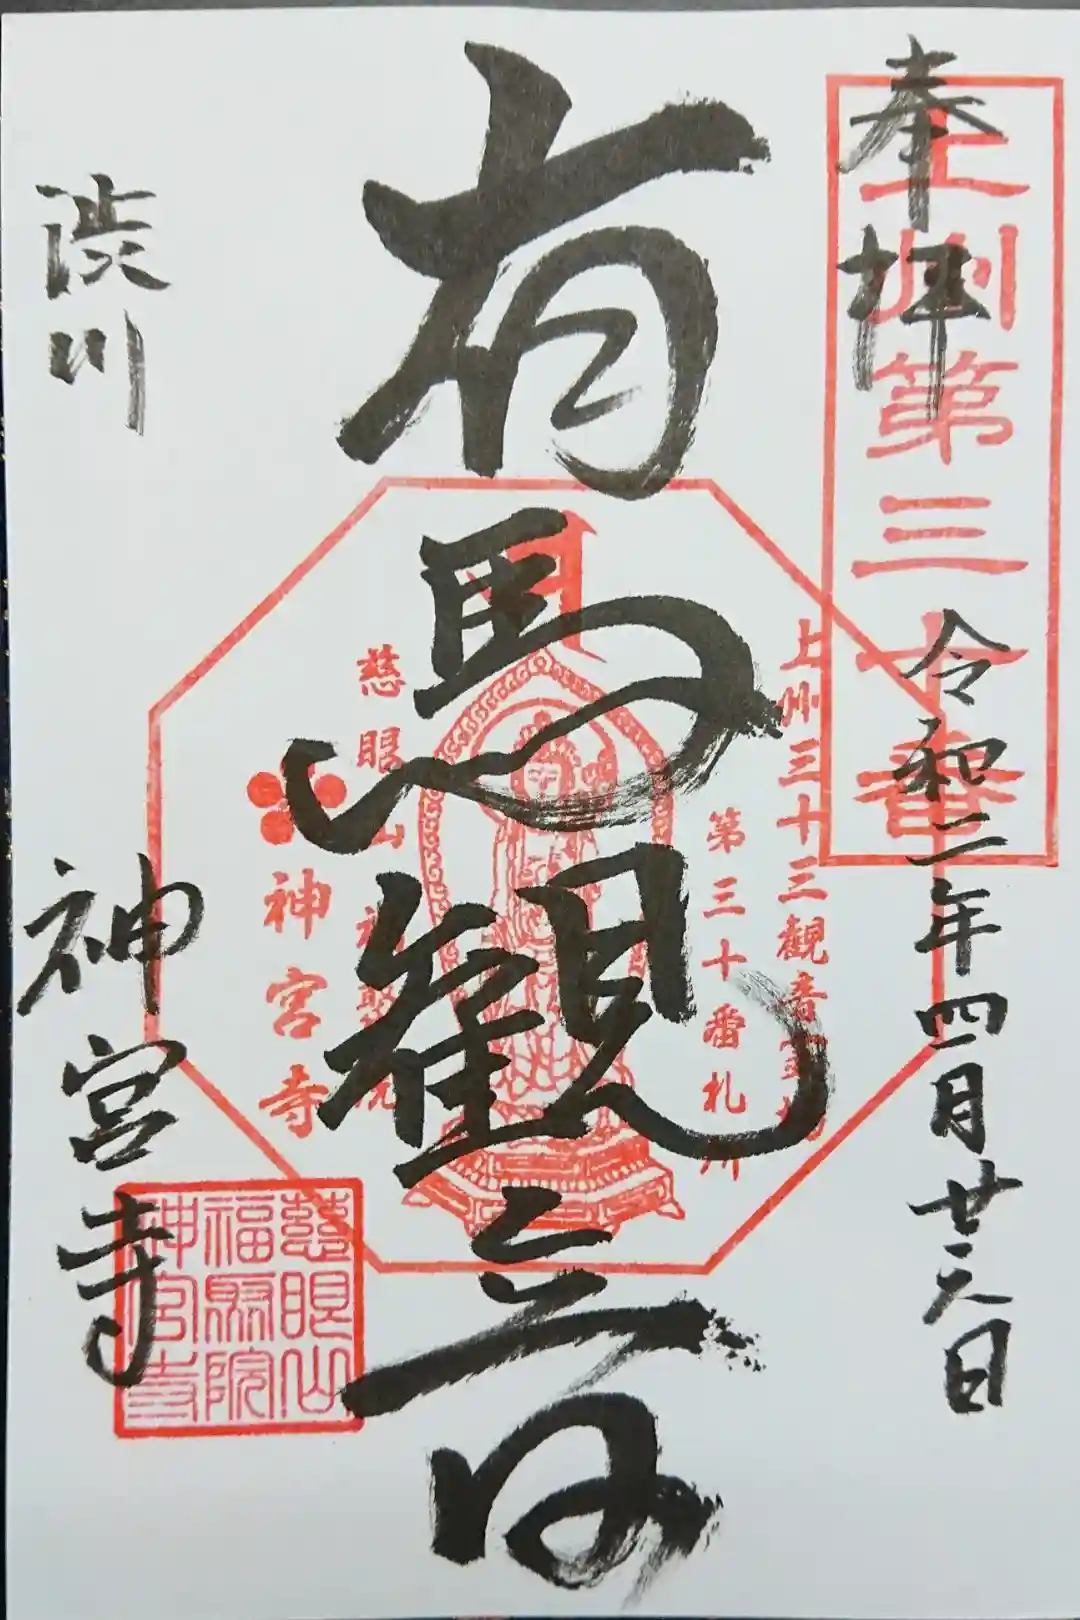 奉拝
上州第三十番
令和二年四月廿六日
有馬観音
上州三十三観音霊場
第三十番札所
慈眼山 福聚院
神宮寺
渋川
神宮寺
慈眼山
福聚院
神宮寺